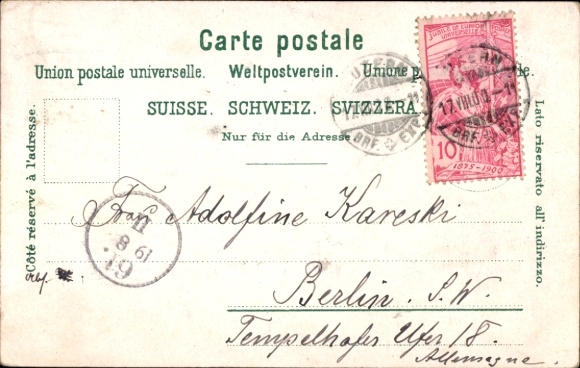 Carte postale
Union postale universelle. Weltpostverein. Unione p
SUISSE. SCHWEIZ. SVIZZERA
Nur für die Adresse
Côté réservé à l'adresse.
Lato riservato all' indirizzo.
10
1875-1900
LUZERN
BRF. EXP.
Frau Adolfine Kareski
Berlin. S. W.
Tempelhofer Ufer 18.
Allemagne.